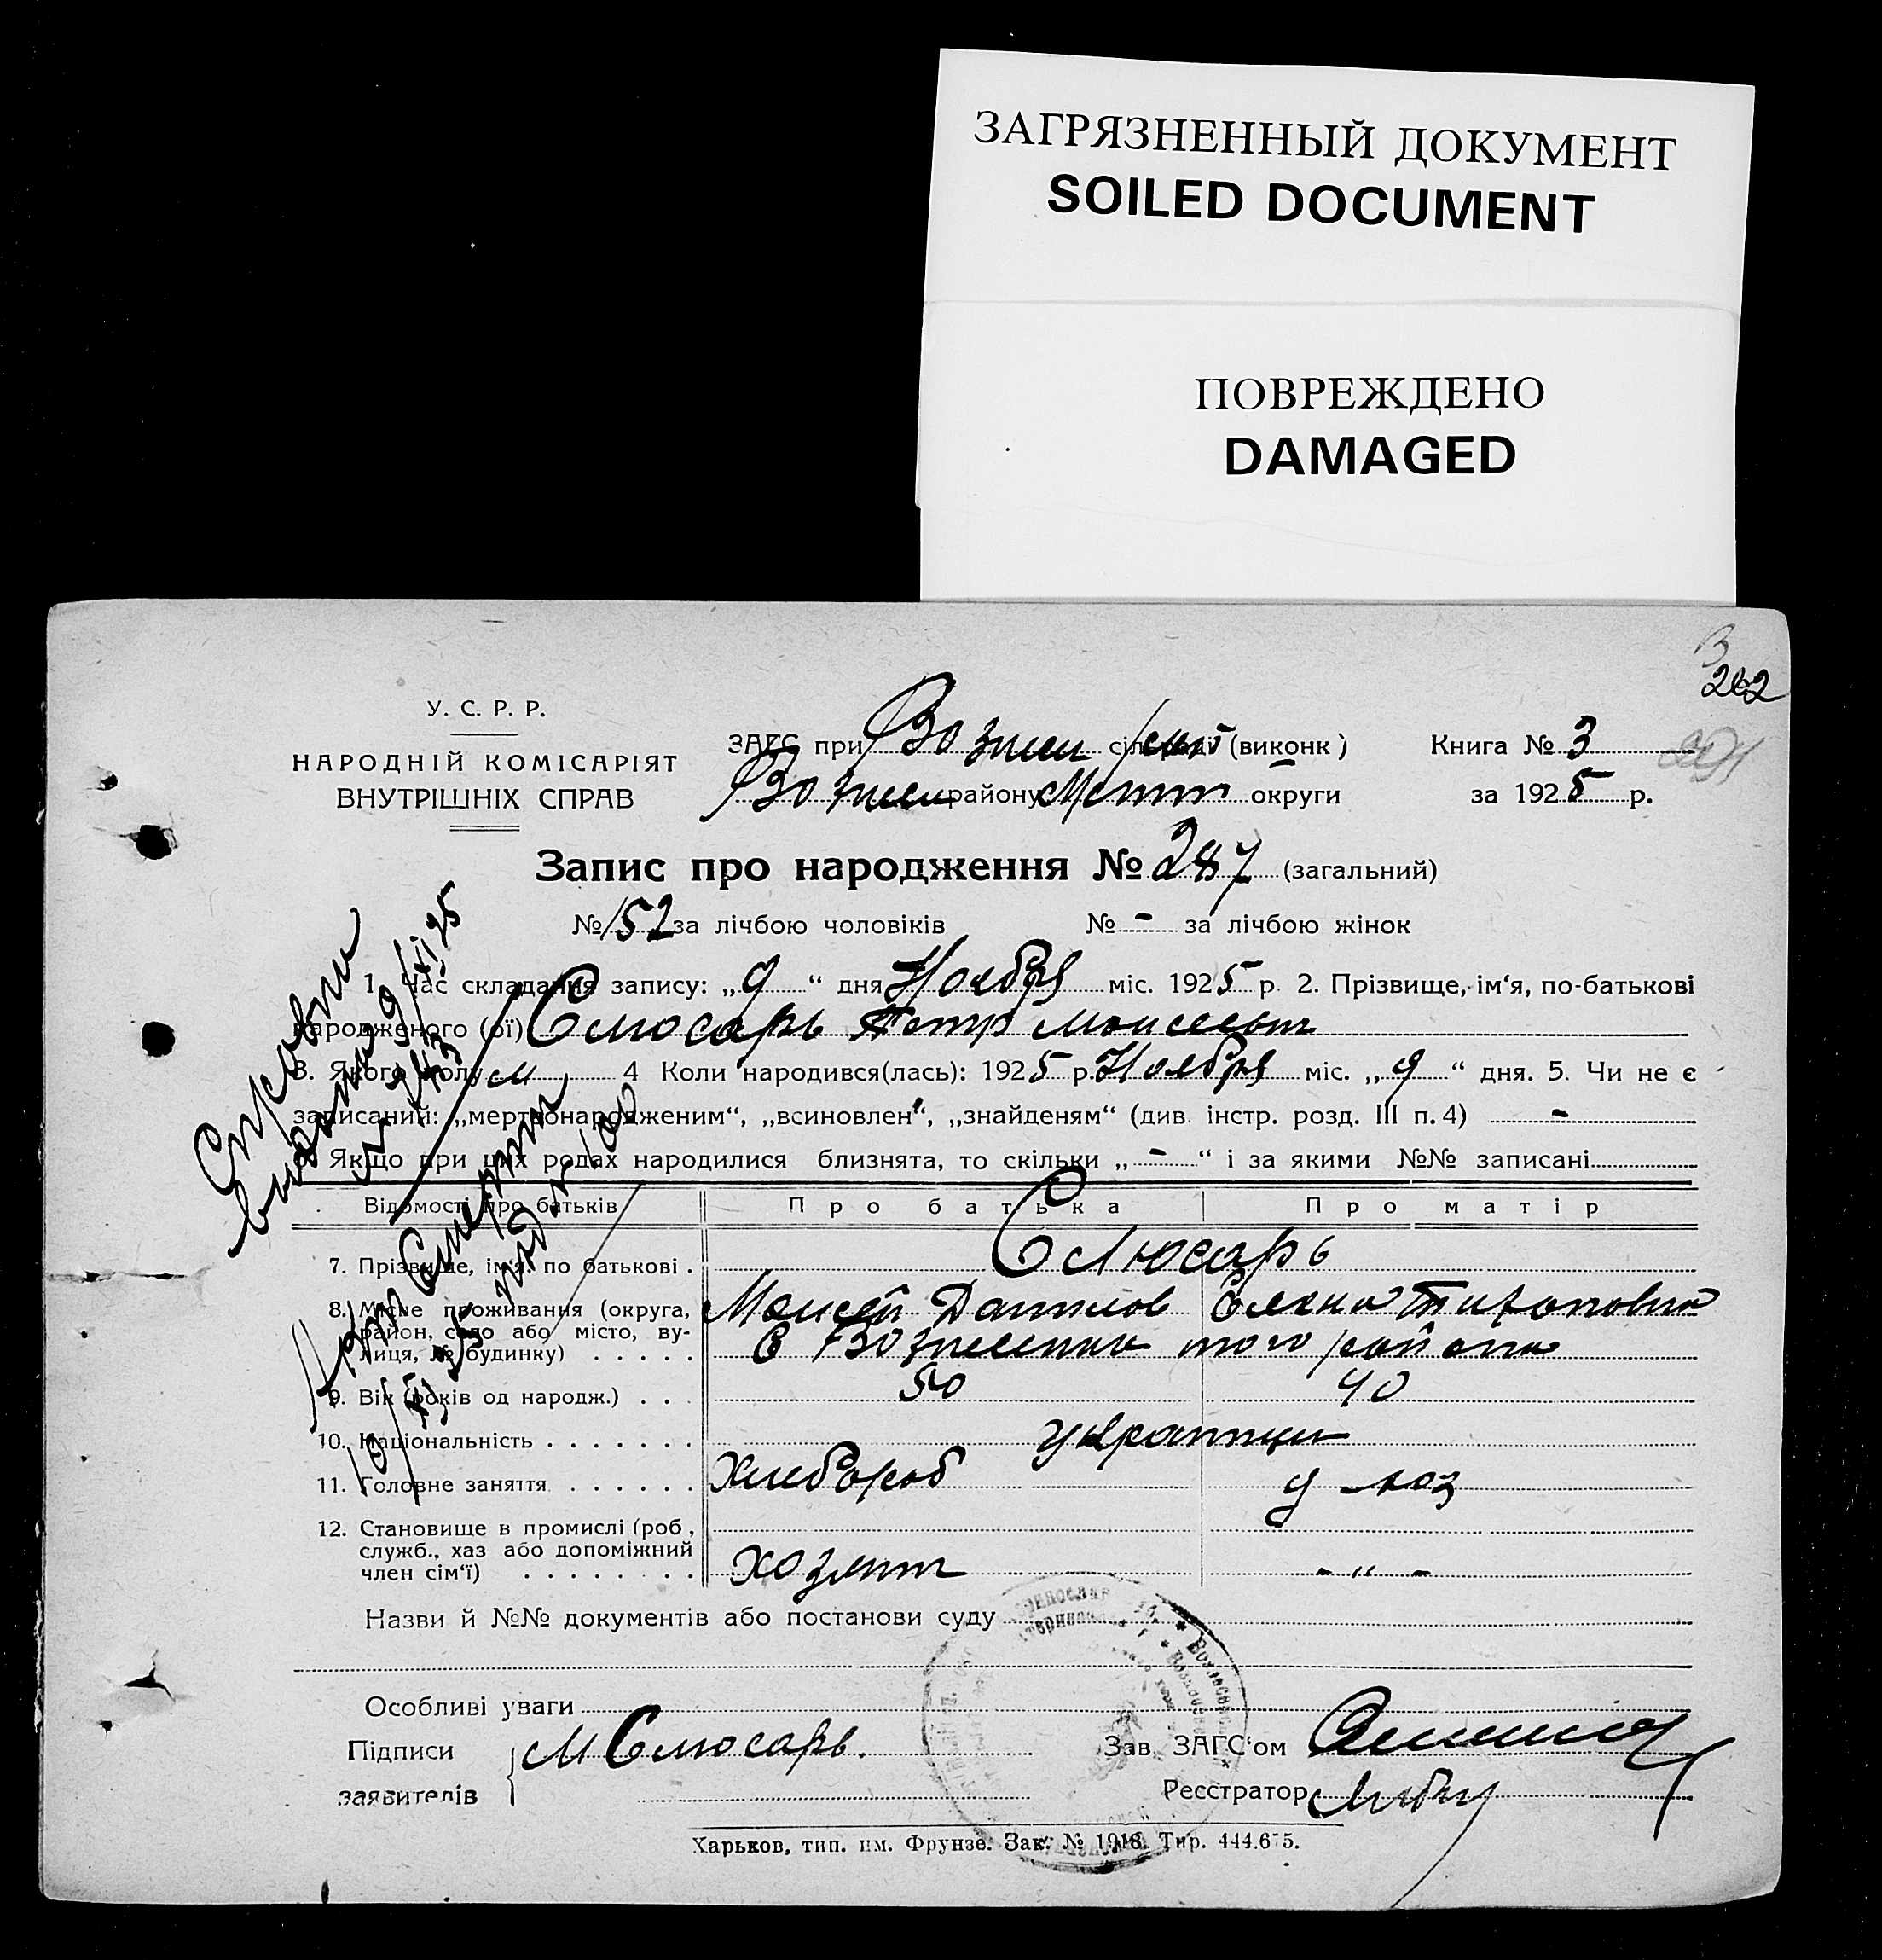 ЗАГРЯЗНЕННЫЙ ДОКУМЕНТ
SOILED DOCUMENT
ПОВРЕЖДЕНО
DAMAGED
У. С. Р. Р.
НАРОДНІЙ КОМІСАРІЯТ
ВНУТРІШНІХ СПРАВ
ЗАГС при Вознесен (виконк)
Вознесен району Меліт округи
Книга № 3
за 1925 р.
262
Запис про народження № 287 (загальний)
№ 152 за лічбою чоловіків № - за лічбою жінок
1. Час складання запису: „9“ дня Ноября міс. 1925 р. 2. Прізвище, ім'я, по-батькові
народженого (ої) Слюсарь Петр Моисеевич
3. Якого полу м 4 Коли народився(лась): 1925 р. Ноября міс. „9“ дня. 5. Чи не є
записаний: „мертвонародженим“, „всиновлен“, „знайденям“ (див. інстр. розд. III п. 4) -
6. Якщо при цих родах народилися близнята, то скільки „-“ і за якими №№ записані
Відомості про батьків Про батька Про матір
7. Прізвище, ім'я, по батькові . Слюсарь
8. Місце проживання (округа, Моисей Данилов Елена Тихоновна
район, село або місто, ву-
лиця, № будинку) . . . . . С Вознесенка того района
9. Вік (років од народж.) . . 50 40
10. Національність . . . . . . . украинцы
11. Головне заняття . . . . . . Хлебороб д хоз
12. Становище в промислі (роб.,
служб., хаз або допоміжний
член сім'ї) . . . . . . . . хозяин - „ -
Назви й №№ документів або постанови суду
Особливі уваги
Підписи М Слюсарь. Зав. ЗАГС'ом
заявителів Реєстратор
Харьков, тип. им. Фрунзе. Зак. № 1918. Тир. 444.675.